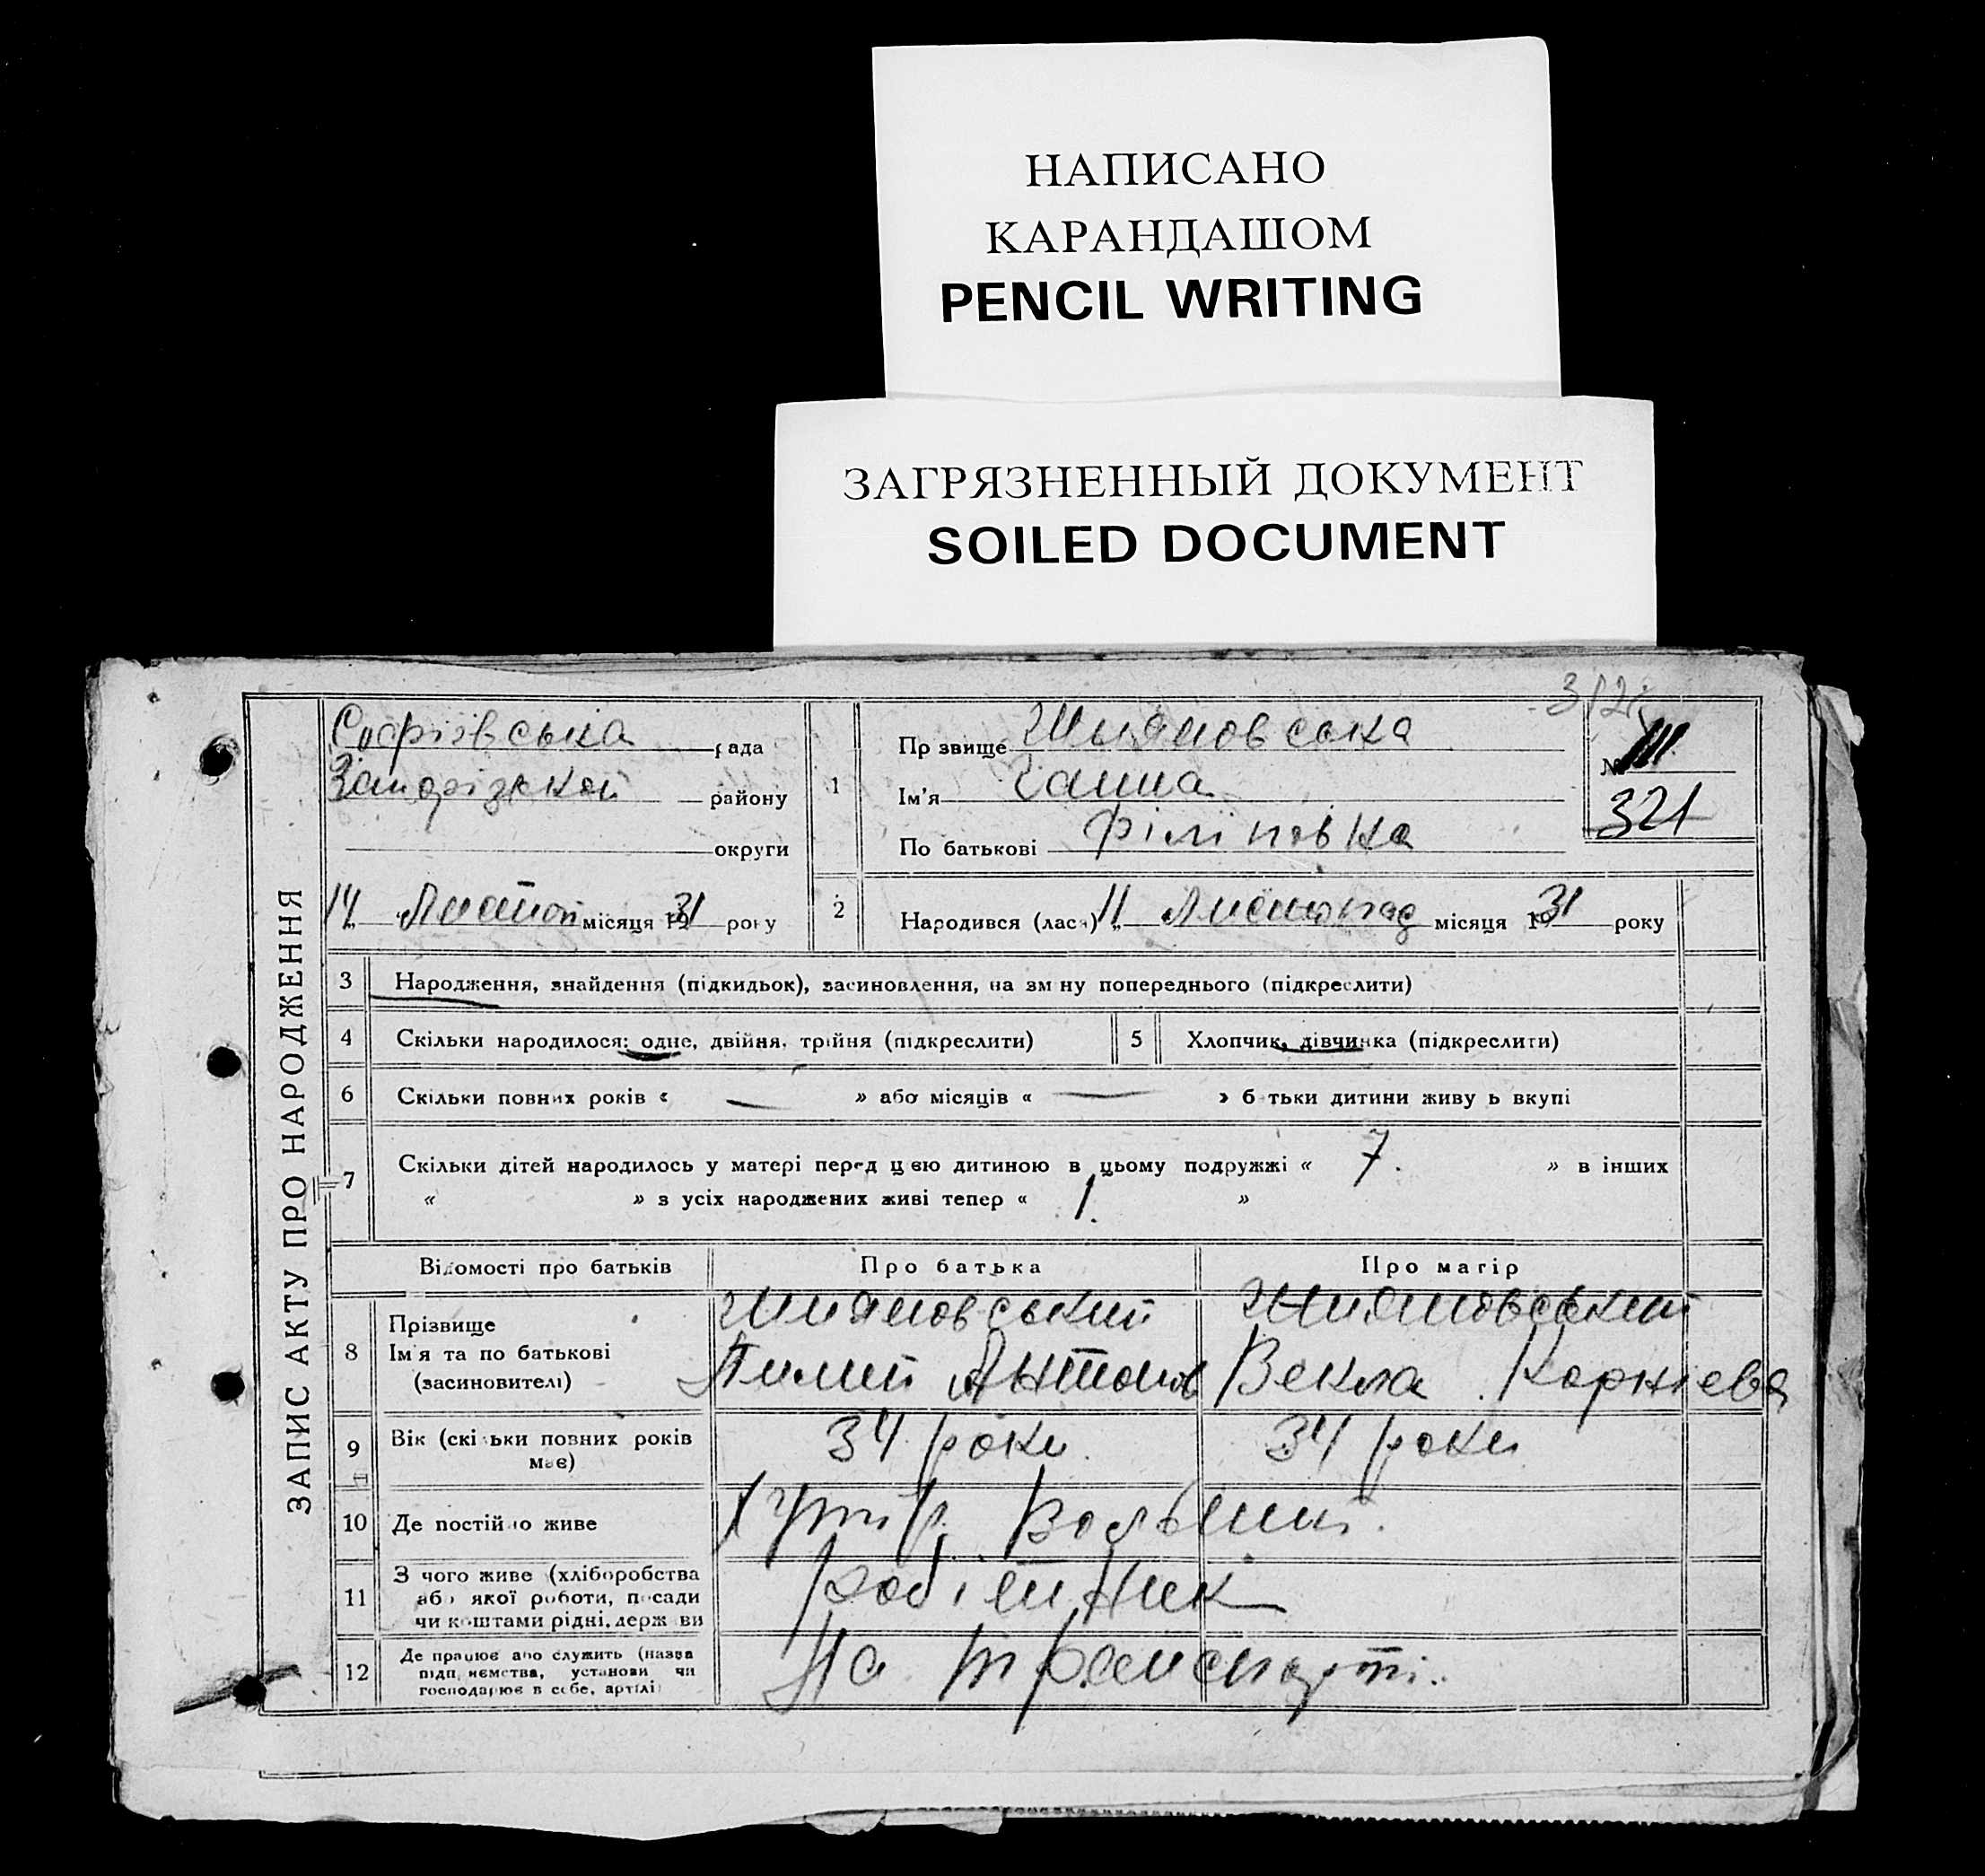 НАПИСАНО
КАРАНДАШОМ
PENCIL WRITING
ЗАГРЯЗНЕННЫЙ ДОКУМЕНТ
SOILED DOCUMENT
ЗАПИС АКТУ ПРО НАРОДЖЕННЯ
Софіівська рада
району
округи
14 Листоп місяця 1931 року
1
Прізвище
Ім'я Ганна
По батькові Філіповна
№
321
2
Народився (лася) 11 Листопад місяця 1931 року
3 Народження, знайдення (підкидьок), засиновлення, на зміну попереднього (підкреслити)
4 Скільки народилося: одне, двійня, трійня (підкреслити)
5 Хлопчик, дівчинка (підкреслити)
6 Скільки повних років « — » або місяців « — » батьки дитини живуть вкупі
7 Скільки дітей народилось у матері перед цією дитиною в цьому подружжі « 7. » в інших
« » з усіх народжених живі тепер « 1. »
Відомості про батьків
Про батька
Про матір
8 Прізвище
Ім'я та по батькові
(засновителі)
Антонов
Векла Корнієва
9 Вік (скільки повних років
має)
34 роки
34 роки
10 Де постійно живе
Хутір
11 З чого живе (хліборобства
або якої роботи, посади
чи коштами рідні, держави
робітник
12 Де працює або служить (назва
підприємства, установи чи
господарює в себе, артілі)
На транспорті.